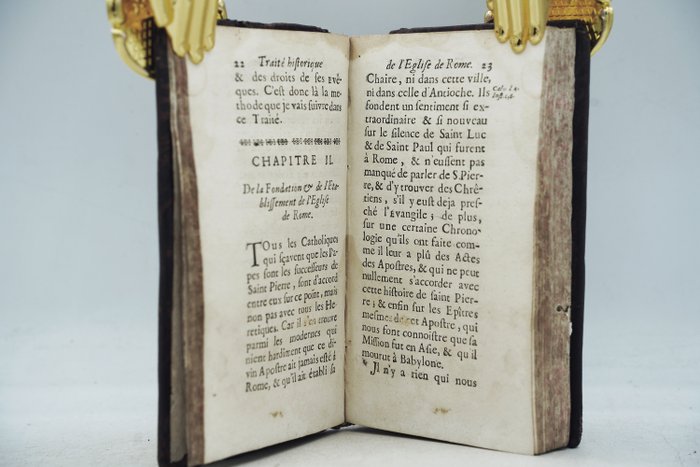 22 Traité historique
& des droits de ses Evê-
ques. C'est donc là la me-
thode que je vais suivre dans
ce Traité.
CHAPITRE II.
De la Fondation & de l'Eta-
blissement de l'Eglise
de Rome.
TOus les Catholiques
qui sçavent que les Pa-
pes sont les successeurs de
Saint Pierre, sont d'accord
entre eux sur ce point, mais
non pas avec tous les He-
retiques. Car il s'en trouve
parmi les modernes qui
nient hardiment que ce di-
vin Apostre ait jamais esté à
Rome, & qu'il ait établi sa
de l'Eglise de Rome. 23
Chaire, ni dans cette ville,
ni dans celle d'Antioche. Ils
fondent un sentiment si ex-
traordinaire & si nouveau
sur le silence de Saint Luc
& de Saint Paul qui furent
à Rome, & n'eussent pas
manqué de parler de S. Pier-
re, & d'y trouver des Chrê-
tiens, s'il y eust déja pres-
ché l'Evangile; de plus,
sur une certaine Chrono-
logie qu'ils ont faite com-
me il leur a plû des Actes
des Apostres, & qui ne peut
nullement s'accorder avec
cette histoire de saint Pier-
re; & enfin sur les Epîtres
mesmes de cet Apostre, qui
nous font connoistre que sa
Mission fut en Asie, & qu'il
mourut à Babylone.
Il n'y a rien qui nous